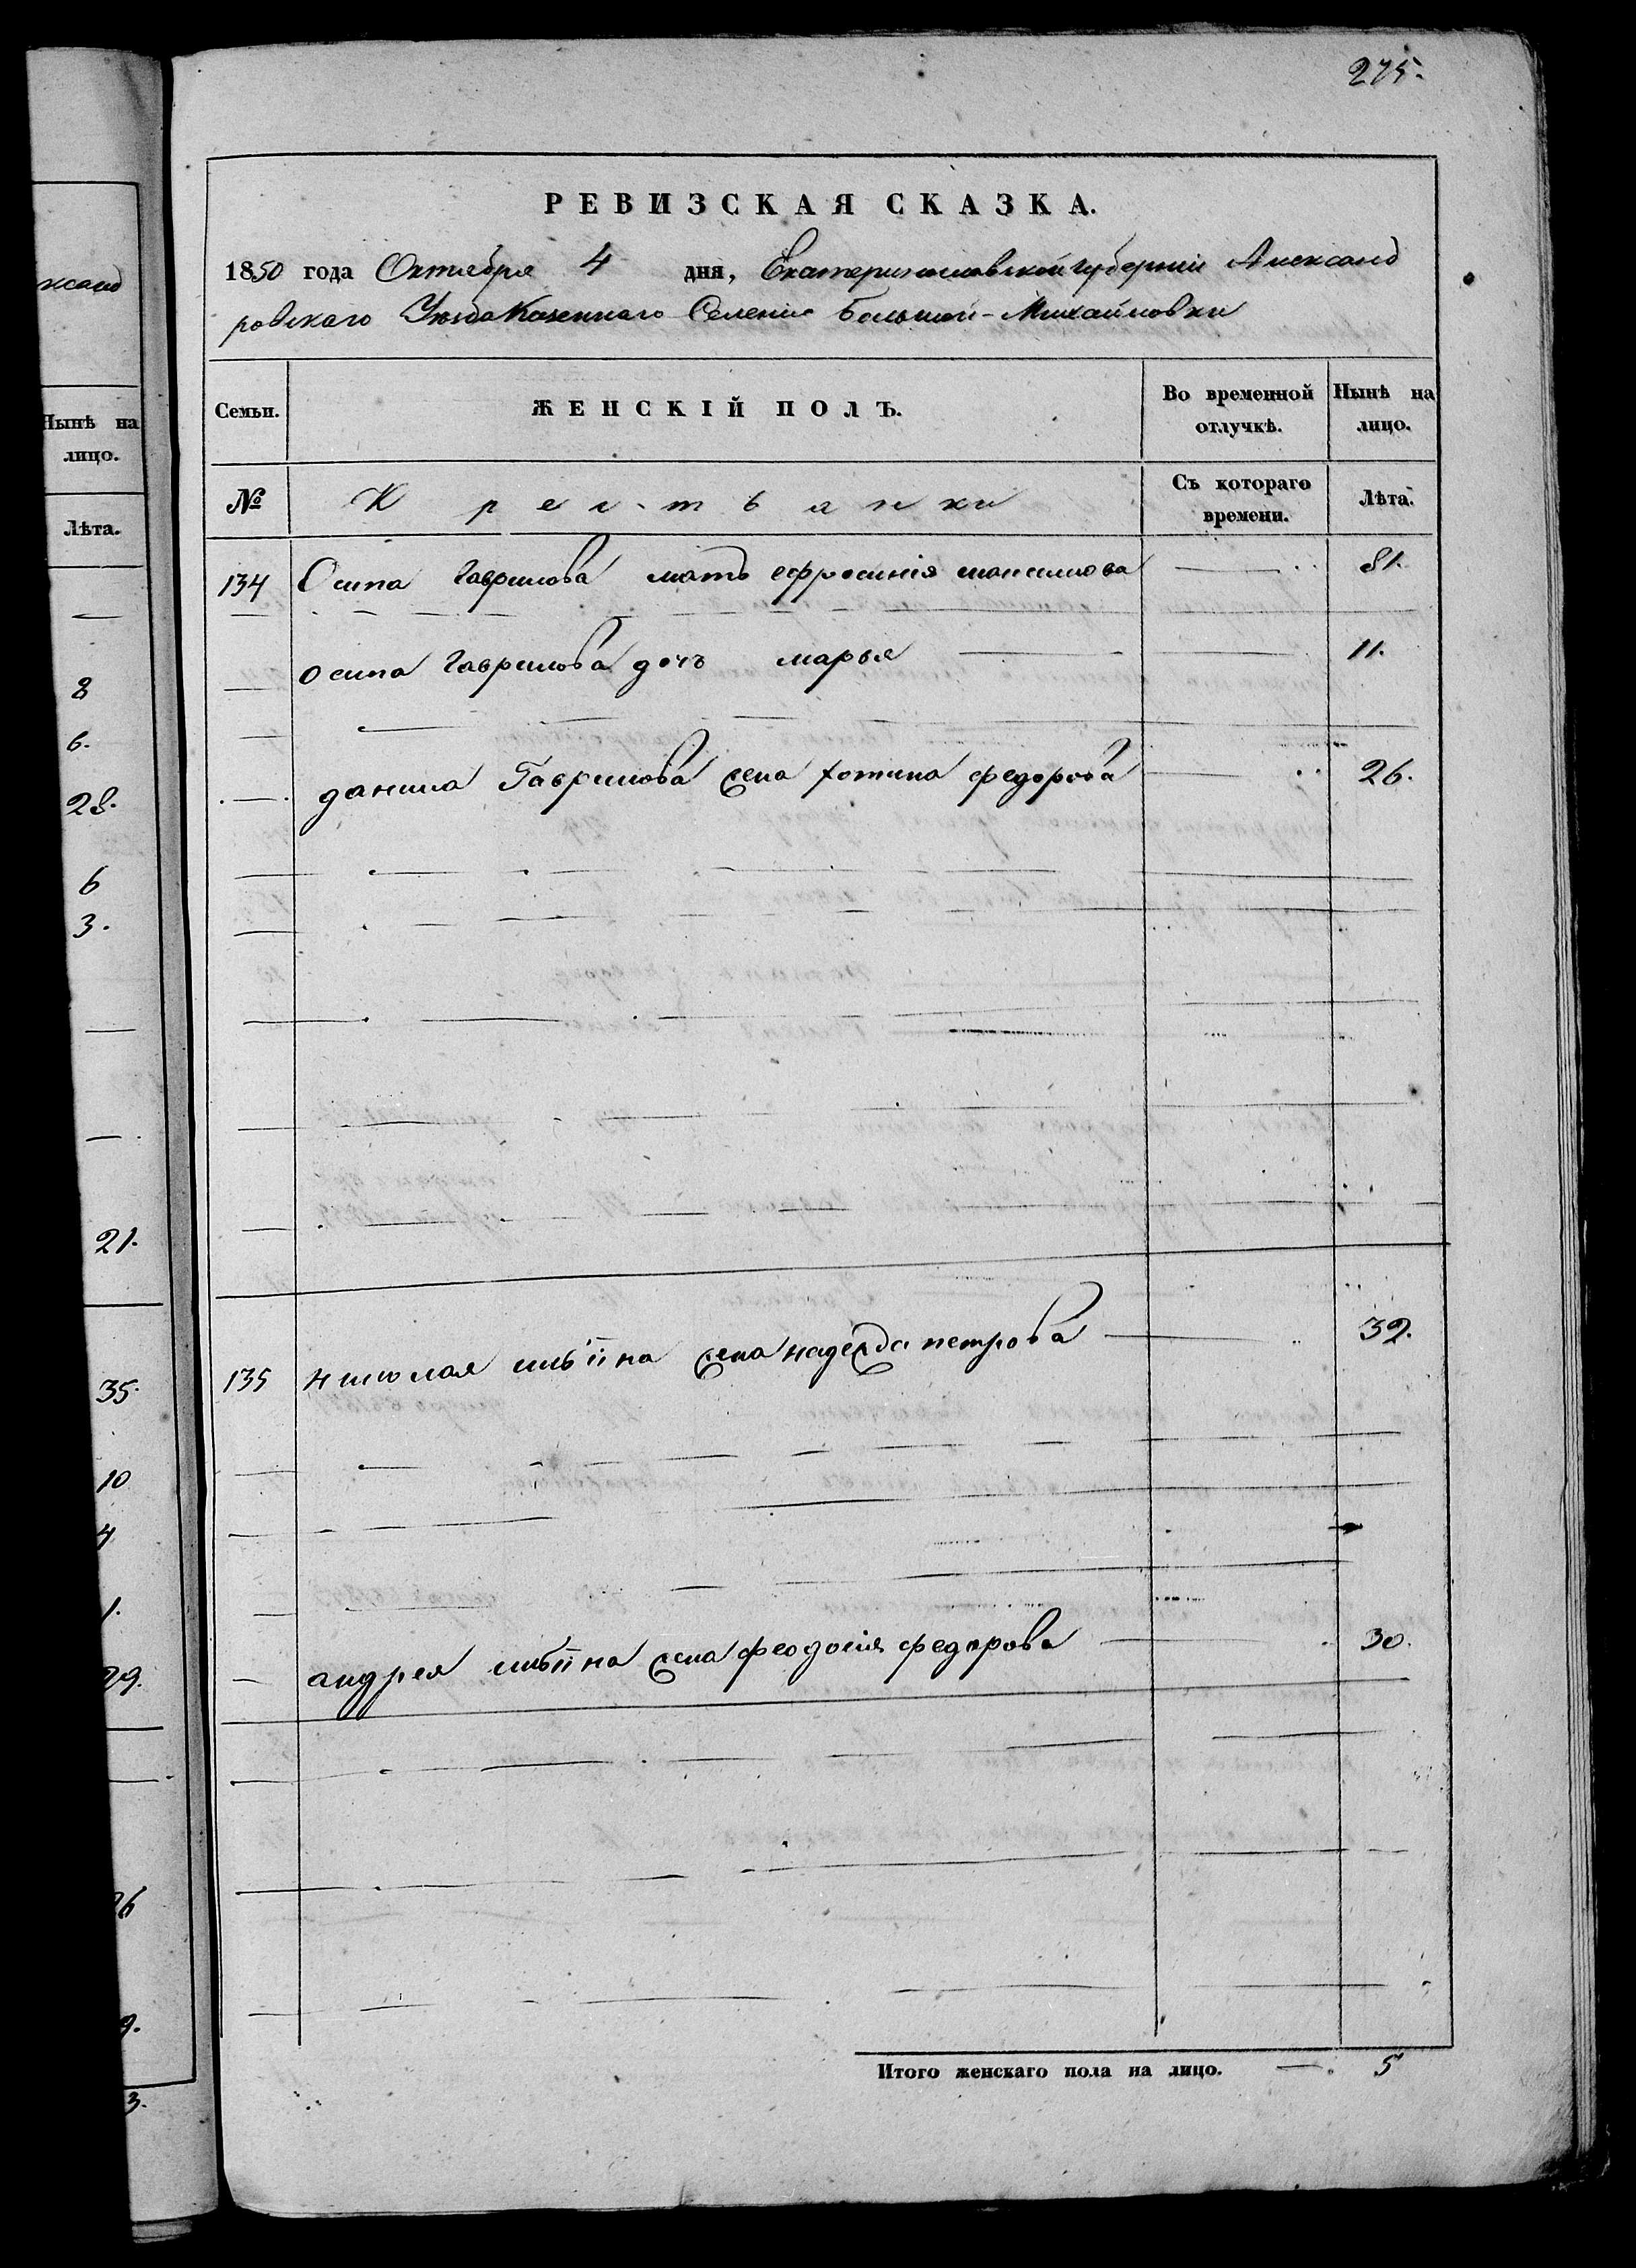 ксанд
Нынѣ на
лицо.
Лѣта.
8
6.
28.
6
3.
21.
35.
10
4
1.
29.
26
9.
3.
275.
РЕВИЗСКАЯ СКАЗКА.
1850 года Октября 4 дня, Екатеринославской губернии Александ
ровскаго Уезда Казеннаго Селения Большой-Михайловки
Семьи. ЖЕНСКІЙ ПОЛЪ. Во временной отлучкѣ. Нынѣ на лицо.
№ Крестьянки Съ котораго времени. Лѣта.
134 Осипа Гаврилова мать ефросинія максимова 81.
осипа Гаврилова дочь марья 11.
данила Гаврилова жена фотина федорова 26.
135 николая ильина жена надежда петрова 32.
андрея ильина жена феодосия федорова 30.
Итого женскаго пола на лицо. 5